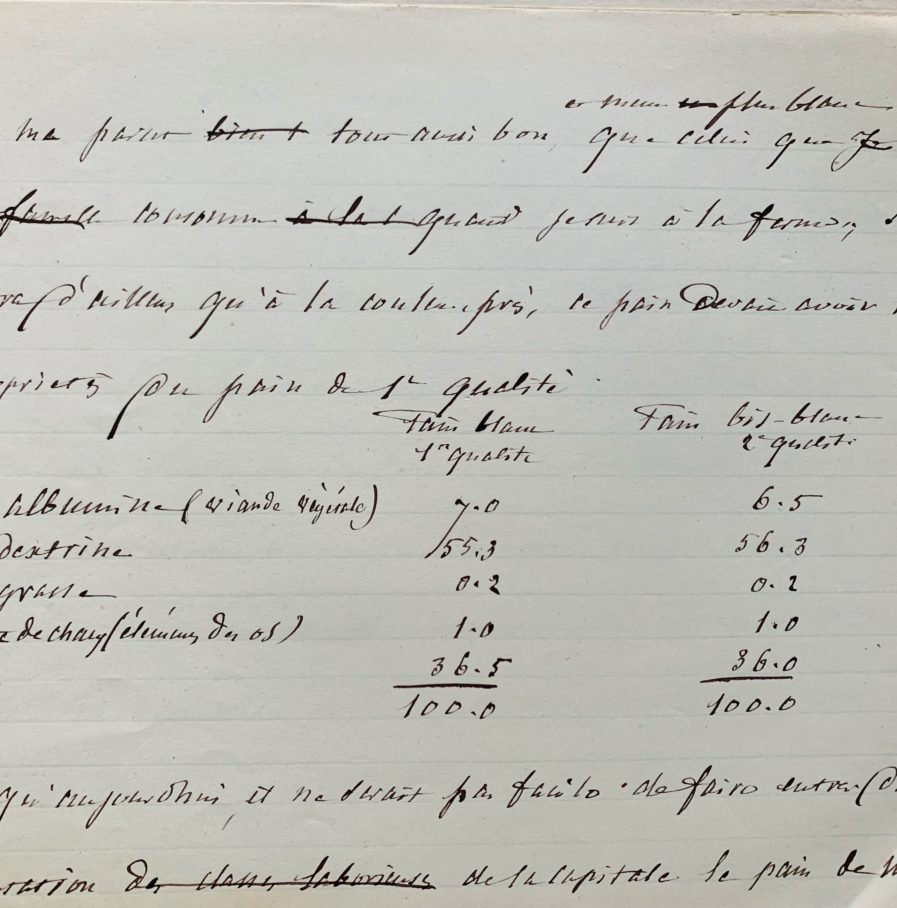 et même plus blanc
me parut bien t tout aussi bon, que celui que je
famille consomme à la t quand je suis à la ferme,
d'ailleurs qu'à la couleur près, ce pain devait avoir
du pain de 1re qualité.
Pain blanc Pain bis-blanc
1re qualité 2e qualité
albumine (viande végétale) 7.0 6.5
dextrine 55.3 56.3
grasse 0.2 0.2
de chaux (éléments des os) 1.0 1.0
36.5 36.0
100.0 100.0
qu'aujourd'hui, et ne serait pas facile de faire entrer
des classes laborieuses de la capitale le pain de